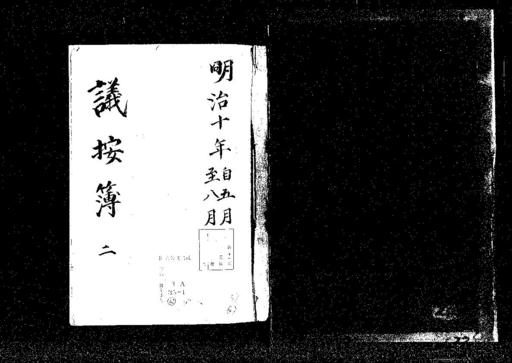 明治十年自五月
至八月
議按簿
二